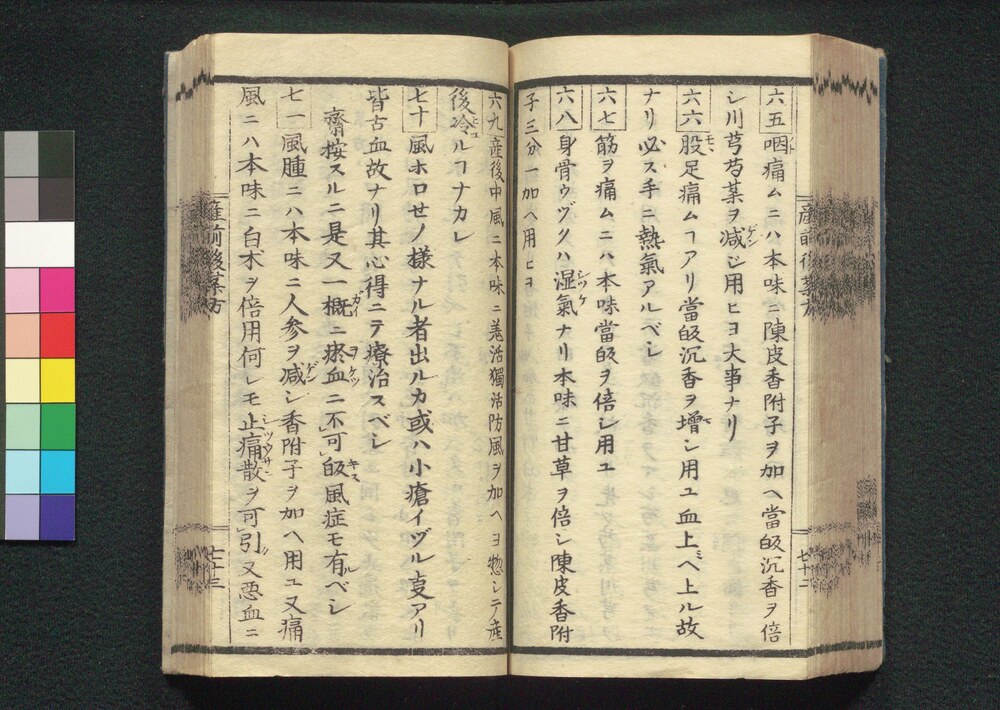 六五咽痛ムニハ本味ニ陳皮香附子ヲ加ヘ當皈沉香ヲ倍
シ川芎芍薬ヲ減ジ用ヒヨ大事ナリ
六六股足痛ムヿアリ當皈沉香ヲ增シ用ユ血上ミヘ上ル故
ナリ必ス手ニ熱氣アルベシ
六七筋ヲ痛ムニハ本味當皈ヲ倍シ用ユ
六八身骨ウヅクハ湿氣ナリ本味ニ甘草ヲ倍シ陳皮香附
子三分一加ヘ用ヒヨ
六九産後中風ニ本味ニ羗活獨活防風ヲ加ヘヨ惣シテ産
後冷ルヿナカレ
七十風ホロセノ様ナル者出ルカ或ハ小瘡イヅル㕝アリ
皆古血故ナリ其心得ニテ療治スベシ
齊按スルニ是又一概ニ瘀血ニ不可皈風症モ有ルベシ
七一風腫ニハ本味ニ人参ヲ減シ香附子ヲ加ヘ用ユ又痛
風ニハ本味ニ白朮ヲ倍用何レモ止痛散ヲ可引又悪血ニ
産前後薬方
七十二
産前後薬方
七十三